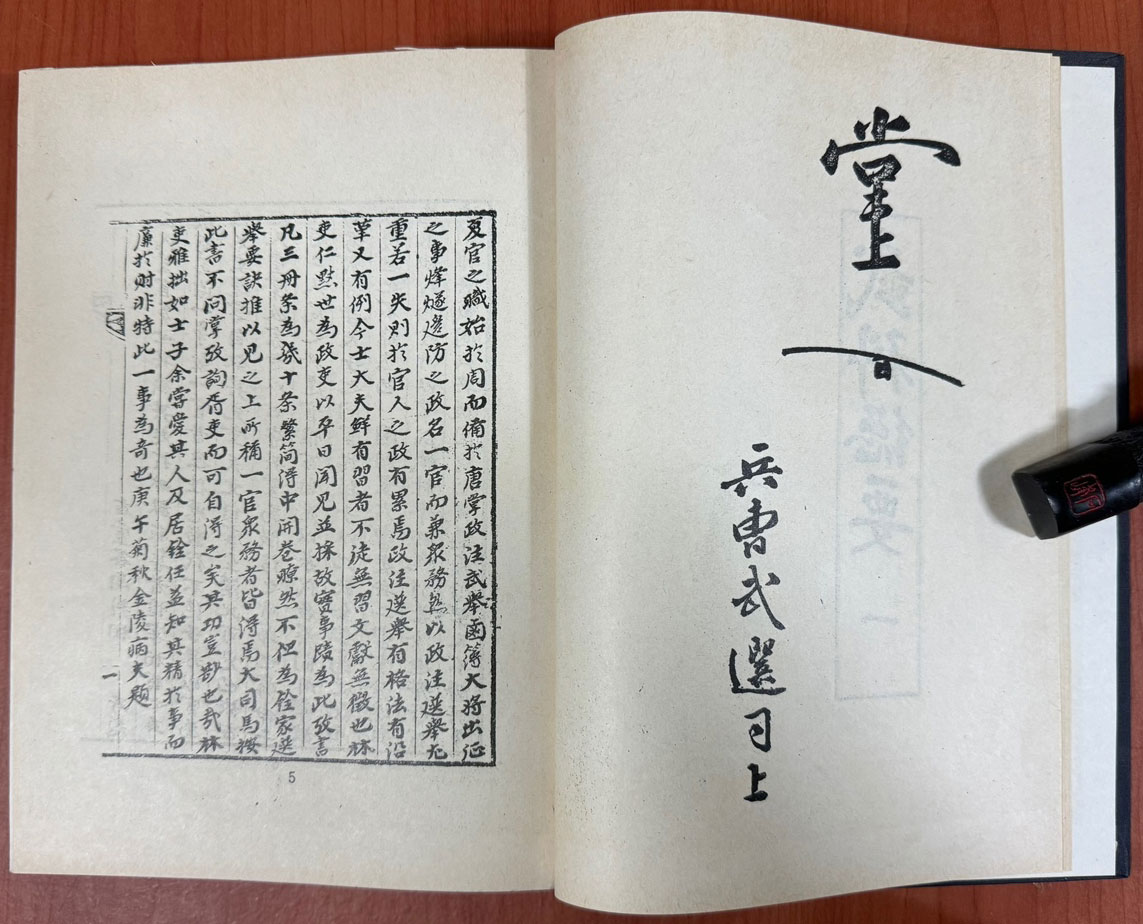 堂上
日
兵曹武選司上
夏官之職始於周而備於唐掌政注武舉鹵簿大將出征
之事烽燧邊防之政名一官而兼衆務然以政注選舉尤
重若一失則於官人之政有累焉政注選舉有格法有沿
革又有例今士大夫鮮有習者不徒無習文獻無徵也林
吏仁黙世為政吏以平日聞見並採故實事為此攷言
凡三冊条為幾十条繁簡得中開巻瞭然不但為銓家選
舉要訣推以見之上所稱一官衆務者皆得焉大司馬按
此書不問掌攷詢胥吏而可自得之矣其功豈尠也哉林
吏雅拙如士子余嘗愛其人及居銓任益知其精於事而
廉於財非特此一事為奇也庚午菊秋金陵病夫題
一
5